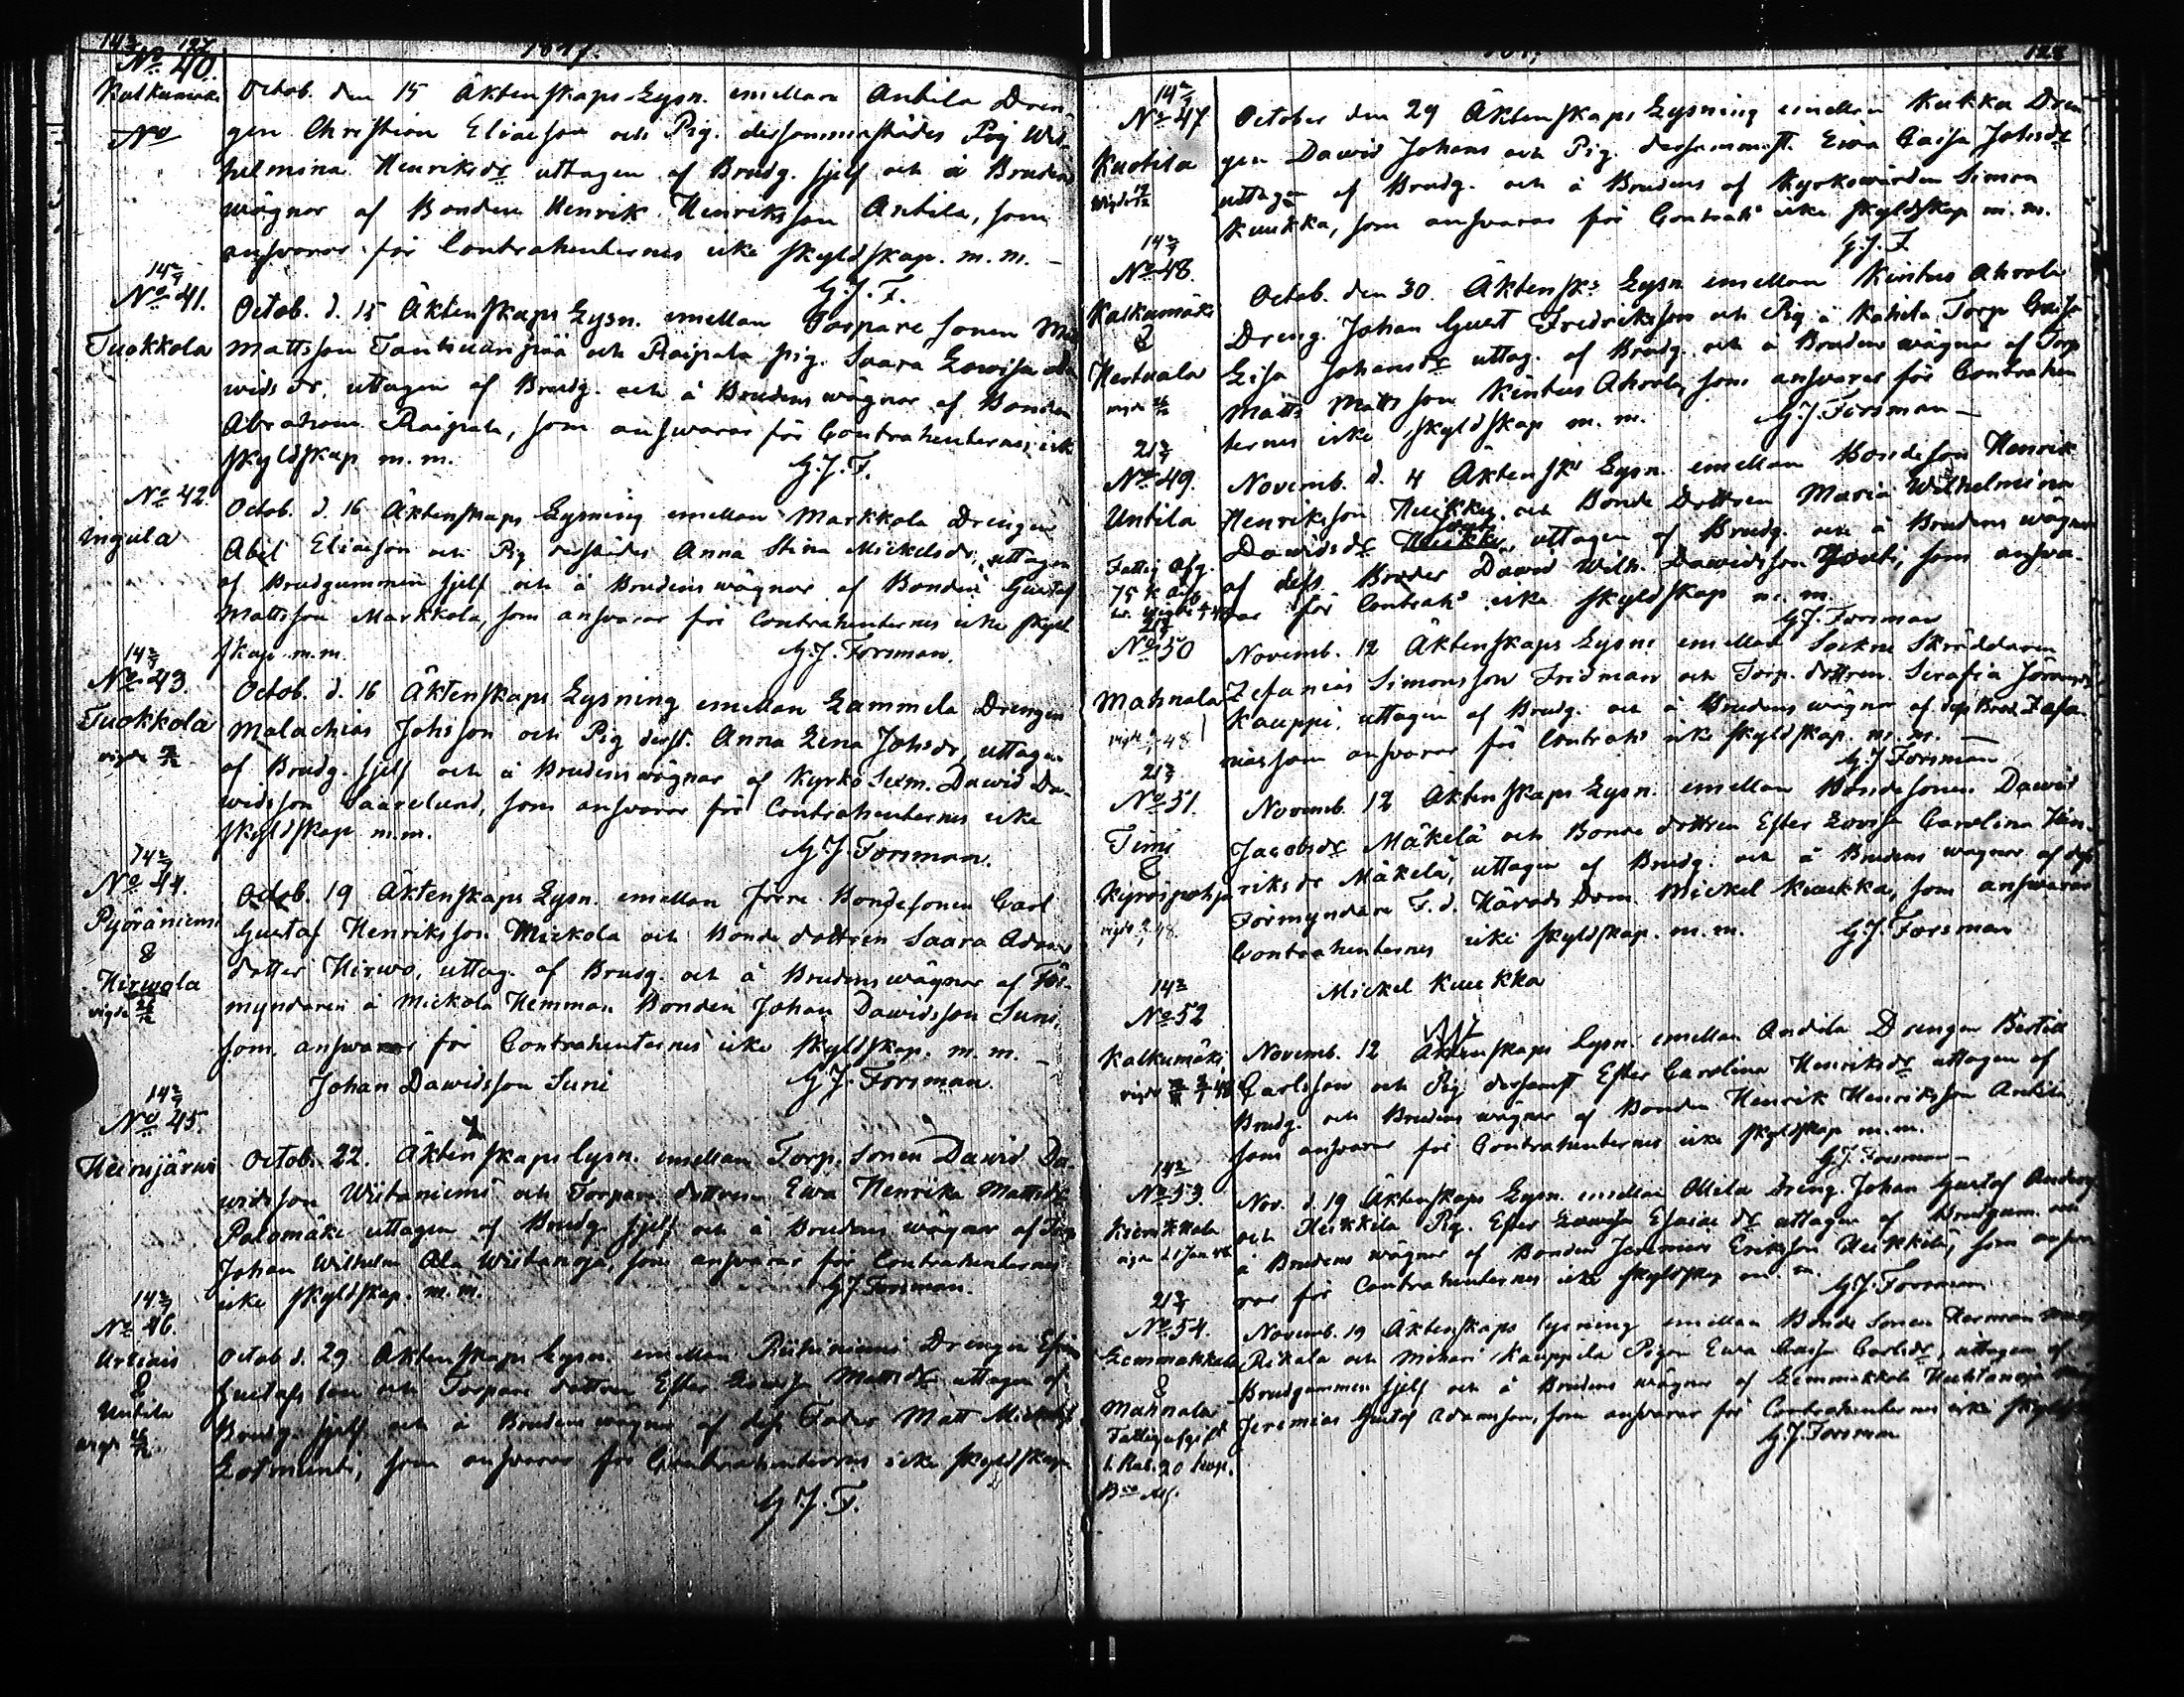 127
1847.
No 40.
Kalkumäki
Octob. den 15 Äktenskaps-Lysn. emellan Antila Dren
gen Christian Eliaeson och Pig. dersammastädes Pig Wil
helmina Henriksdr uttagen af Brudg. sjelf och å Brudens
wägnar af Bonden Henrik Henriksson Antila, som
answarar för Contrahenternes icke skyldskap. m. m. —
G. J. F.
No 41.
Tuokkola
Octob. d. 15 Äktenskaps Lysn. emellan Torpare Sonen
Mattsson och Raipala pig. Saara Lowisa
widsdr, uttagen af Brudg. och å Brudens wägnar af Bonden
Abraham Raipala, som answarar för Contrahenternes ick
skyldskap m. m.
G. J. F.
No 42.
Ingula
Octob. d. 16 Äktenskaps Lysning emellan Markkola Drengen
Abel Eliaeson och Pig derstädes Anna Stina Mickelsdr, uttagen
af Brudgummen sjelf och å Brudens wägnar af Bonden Gustaf
Mattsson Markkola, som answarar för Contrahenternes icke skyld
skap m. m.
G. J. Forsman.
No 43.
Tuokkola
vigde
Octob. d. 16 Äktenskaps Lysning emellan Lammela Drengen
Malachias Johsson och Pig derst. Anna Lena Johsdr, uttagen
af Brudg. sjelf och å Brudens wägnar af Kyrko Sexm. Dawid Da-
widsson Saarelund, som answarar för Contrahenternes icke
skyldskap m. m.
G. J. Forsman.
No 44.
Pyöräniemi
&
Hirwola
vigde 26/12
Octob. 19 Äktenskaps Lysn. emellan Bondesonen Carl
Gustaf Henriksson Mickola och Bonde dottren Saara Adams
dotter Hirwo, uttag. af Brudg. och å Brudens wägnar af För-
myndaren å Mickola Hemman Bonden Johan Dawidsson Suni,
som answarar för Contrahenternes icke skyldskap. m. m. —
Johan Dawidsson Suni
G. J. Forsman.
No 45.
Heinijärwi
Octob. 22. Äktenskaps lysn. emellan Torp. Sonen Dawid Da-
widsson Wistaniemi och Torpare dottren Ewa Henrika Mattsdr
Palomäki uttagen af Brudg. sjelf och å Brudens wägnar af Torp
Johan Wilhelm Ala Wistanoja, som answarar för Contrahenternes
icke skyldskap. m. m.
G. J. Forsman.
No 46.
Urtiais
&
Untila
vigde 26/12
Octob d. 29 Äktenskaps Lysn. emellan Drengen
Gustafsson och Torpare dottren Ester Lowisa Mattsdr uttagen af
Brudg. sjelf och å Brudens wägnar af dess Fader Matt
som answarar för Contrahenternes icke skyldskap
G. J. F.
128
No 47
Kuotila
October den 29 Äktenskaps Lysning emellan Kukka Dren
gen Dawid Johans och Pig. dersammast. Ewa Caisa Johsdr
uttagen af Brudg. och å Brudens af Kyrkowärden Simon
Kuukka, som answarar för Contrah:s icke skyldskap m. m.
G. J. F
No 48.
Kalkumäki
&
Hertuala
vigde 26/12
Octob. den 30. Äktensk:s Lysn. emellan Kintus Ahrola
Dreng. Johan Gust Fredriksson och Pig å Kahila Torp Caisa
Lisa Johansdr uttag. af Brudg. och å Brudens wägnar af Torp
Matts Mattsson Kintus Ahrola, som answarar för Contrahen
ternes icke skyldskap m. m.
G. J. Forsman —
No 49.
Untila
Fattig Afg.
75 k
Novemb. d. 4 Äktensk:s Lysn. emellan Bondeson Henrik
Henriksson Heikky och Bonde Dottren Maria Wilhelmina
Dawidsdr uttagen af Brudg. och å Brudens wägnar
af dess Broder Dawid Wilh. Dawidsson som answa-
rar för Contrah:s icke skyldskap m. m.
G. J. Forsman
No 50
Mahnala
Novemb. 12 Äktenskaps Lysn: emellan Sockne Skräddaren
Zefanias Simonsson Fridman och Torp. dottren Serafia
Kauppi, uttagen af Brudg. och å Brudens wägnar af dess Brod. Zefa-
nias som answarar för Contrah:s icke skyldskap. m. m. —
G. J. Forsman
No 51.
Timi
&
Kyröspohja
Novemb. 12 Äktenskaps Lysn. emellan Bondesonen Dawid
Jacobsdr Mäkelä och Bonde dottren Ester Lovisa Carolina Hen-
riksdr Mäkelä, uttagen af Brudg. och å Brudens wägnar af dess
Förmyndare F. d. Härads Dom. Mickel Kuukka, som answarar
Contrahenternes icke skyldskap. m. m.
G. J. Forsman
Mickel Kuukka
No 52
Kalkumäki
Novemb. 12 Äktenskaps Lysn. emellan Andila Drengen Bertill
Carlsson och Pig dersamst Ester Carolina Henriksdr uttagen af
Brudg. och Brudens wägnar af Bonden Henrik Henriksson Antila
som answarar för Contrahenternes icke skyldskap m. m.
G. J. Forsman —
No 53.
Nov. d. 19 Äktenskaps Lysn. emellan Ollila Dreng. Johan Gustaf
och Heikkilä Pig. Ester Lowisa Esaiae dr uttagen af Brudgum. och
å Brudens wägnar af Bonden Jeremias Eriksson Heikkilä, som answa
rar för Contrahenternes icke skyldskap m. m.
G. J. Forsman
No 54.
Lemmakkala
&
Mahnala
Fattigafgift
Novemb. 19 Äktenskaps lysning emellan Bonde Sonen Herman
Rikala och Kauppila Pigan Ewa Caisa Carlsdr, uttagen af
Brudgummen sjelf och å Brudens wägnar af Lemmakkala Huhtanoja
Jeremias Gustaf Adamsson, som answarar för Contrahenternes icke
G. J. Forsman